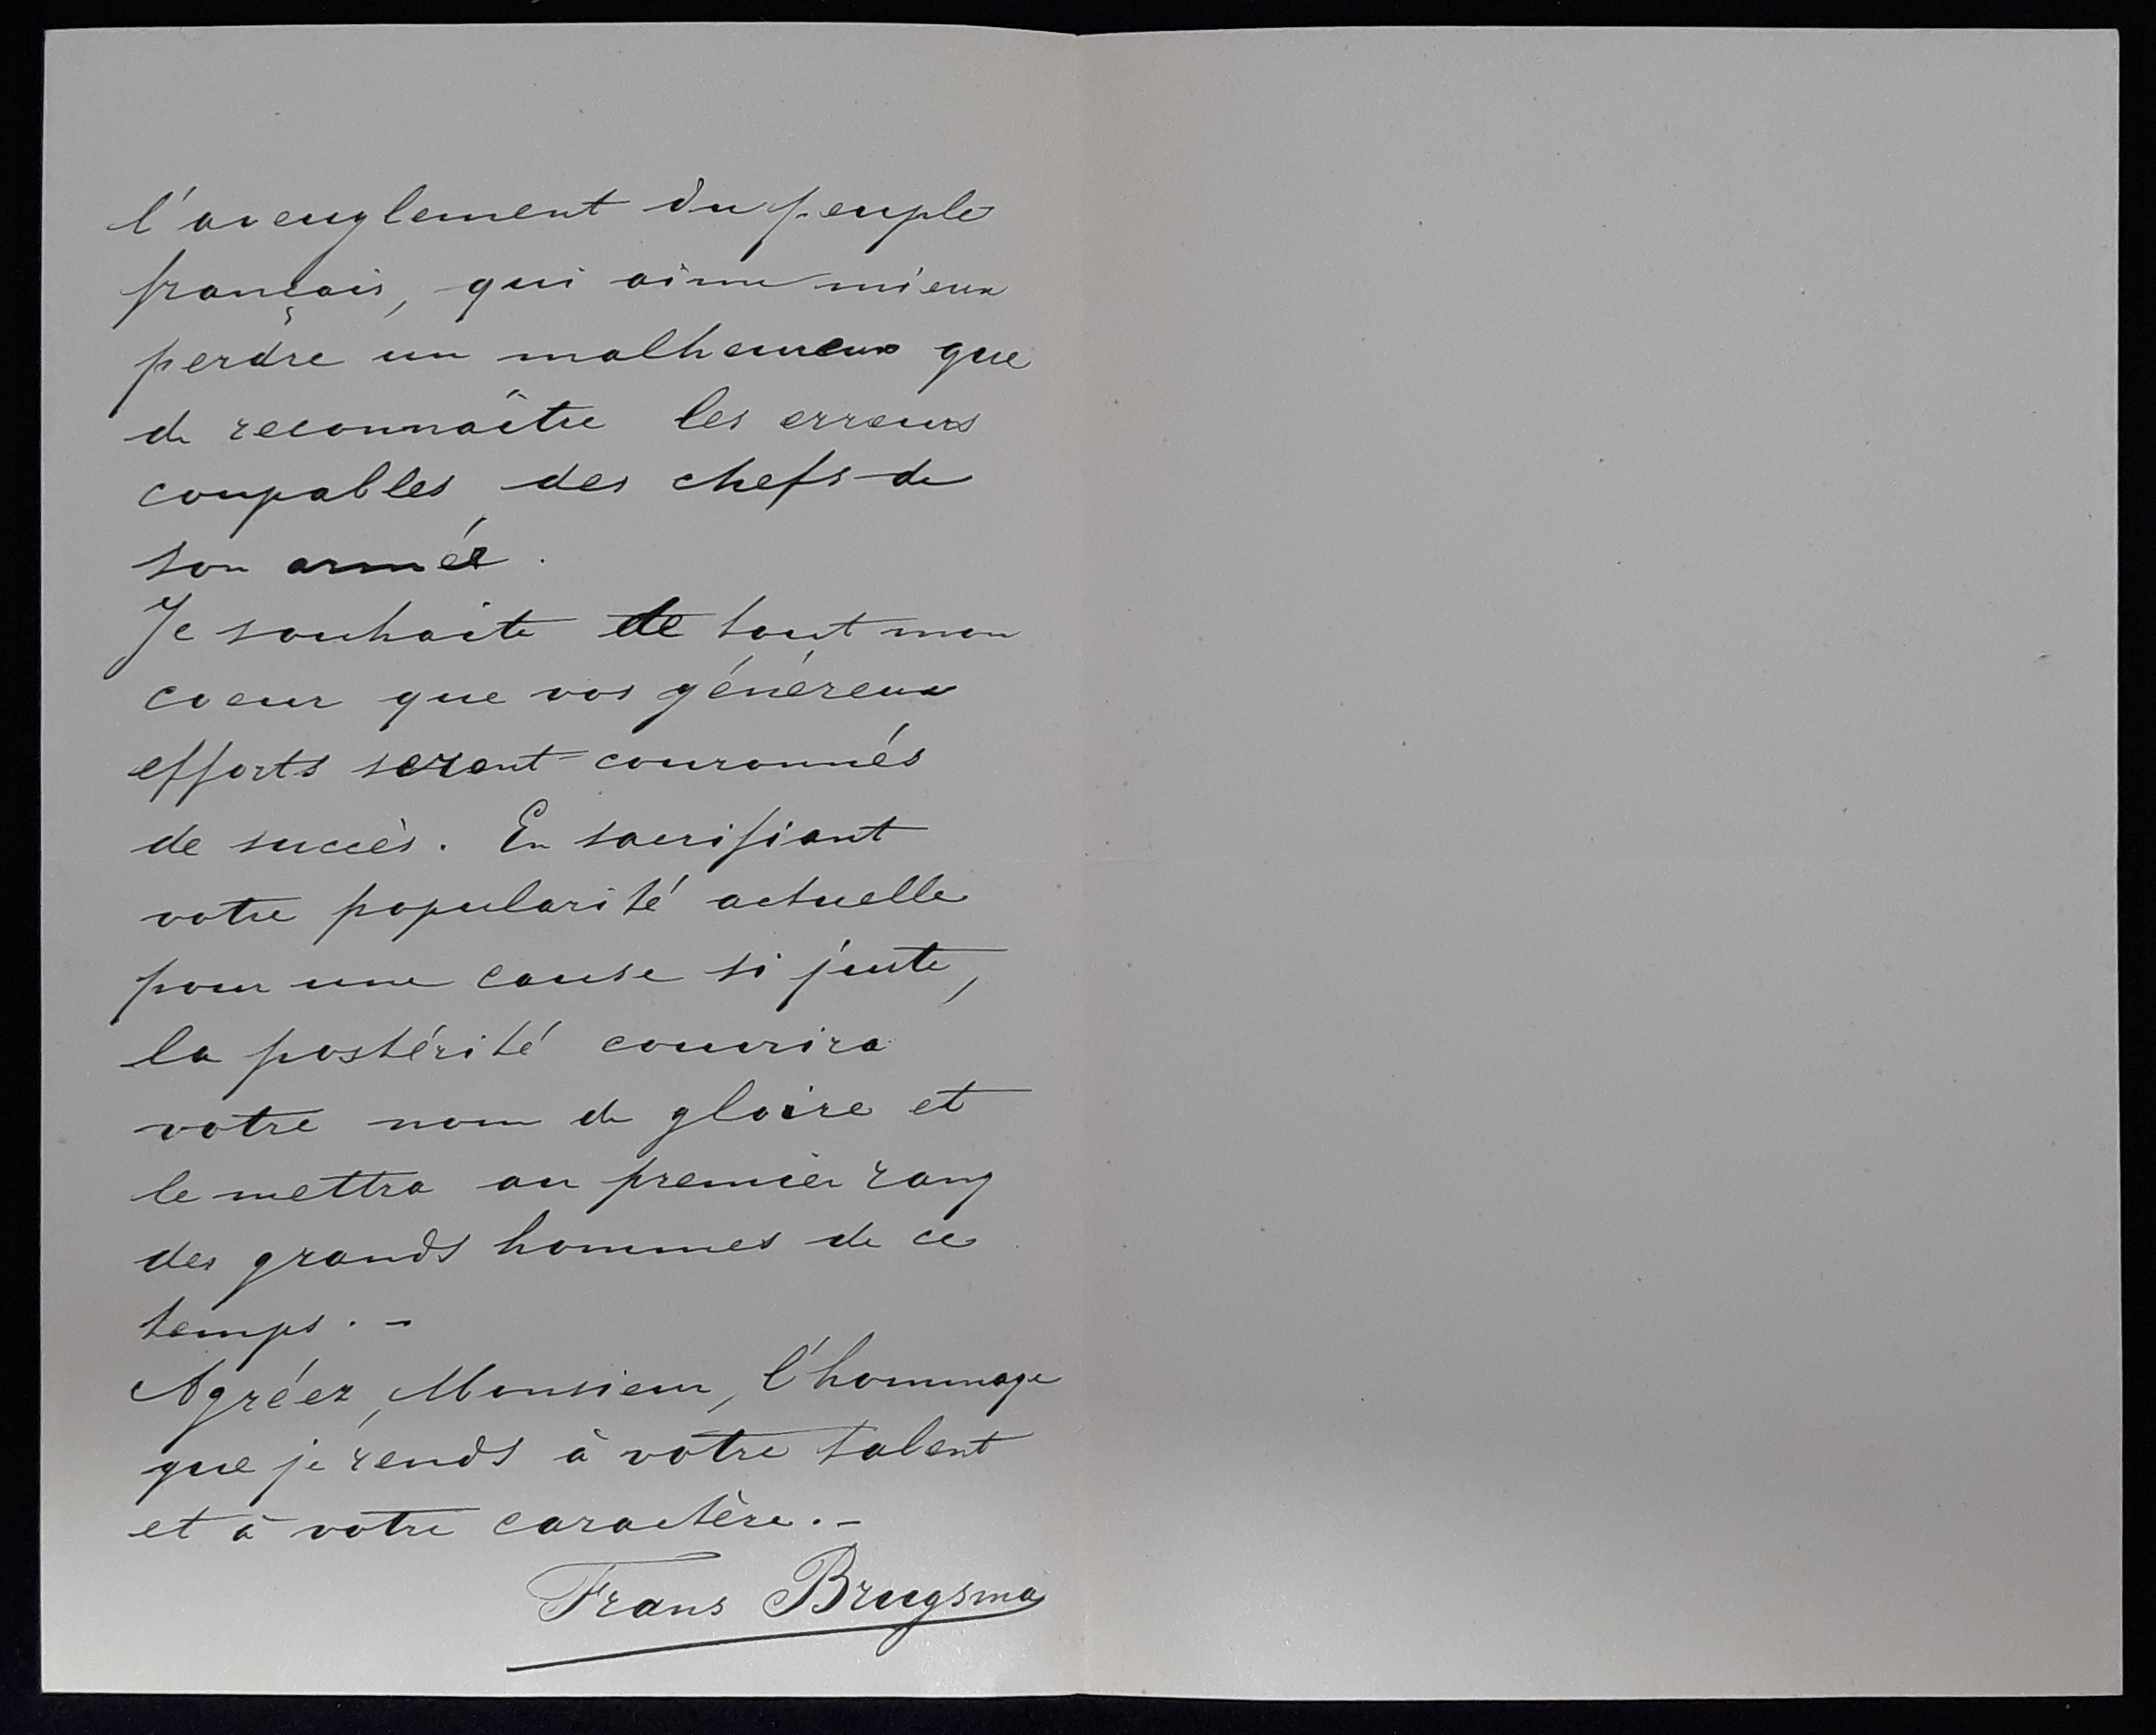 l'aveuglement du peuple
français, qui aime mieux
perdre un malheureux que
de reconnaître les erreurs
coupables des chefs de
son armée.
Je souhaite de tout mon
coeur que vos généreux
efforts seront couronnés
de succès. En sacrifiant
votre popularité actuelle
pour une cause si juste,
la postérité couvrira
votre nom de gloire et
le mettra au premier rang
des grands hommes de ce
temps. -
Agréez, Monsieur, l'hommage
que je rends à votre talent
et à votre caractère. -
Frans Brugsma